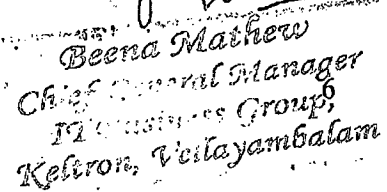 Beena Mathew
Chief General Manager
IT Business Group,
6
Keltron, Vellayambalam